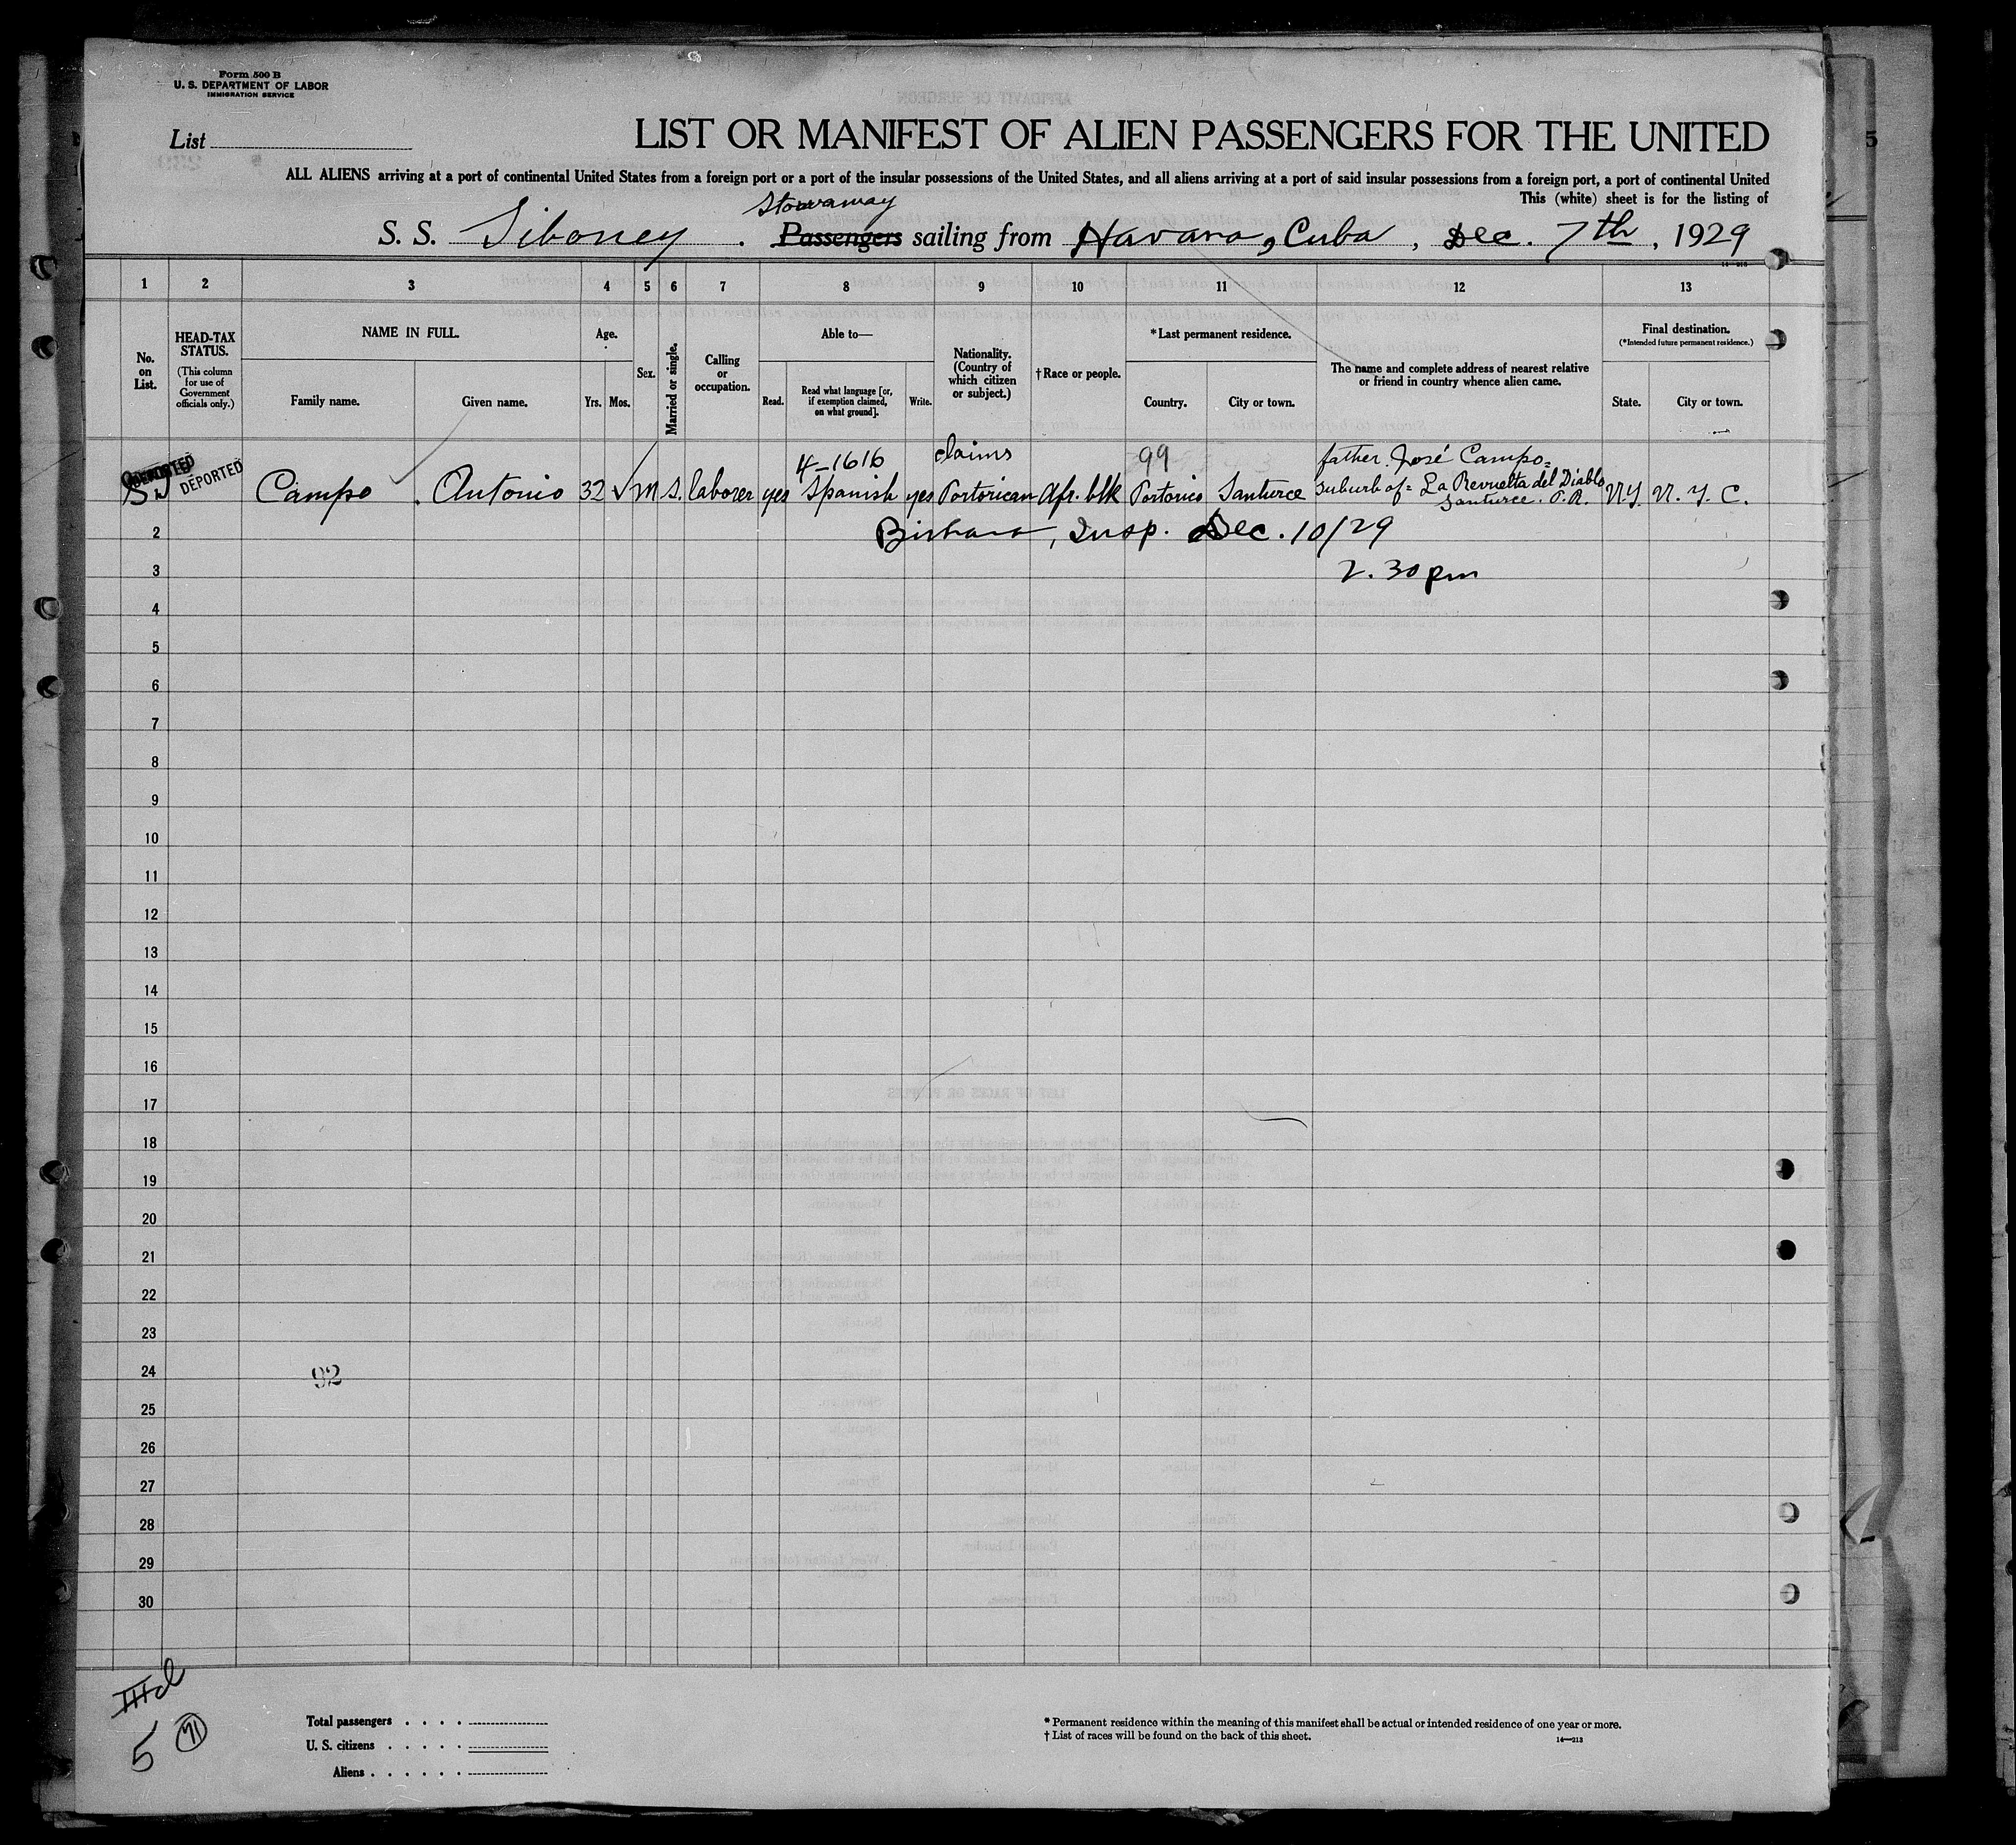 Form 500 B
U. S. DEPARTMENT OF LABOR
IMMIGRATION SERVICE
List
LIST OR MANIFEST OF ALIEN PASSENGERS FOR THE UNITED
ALL ALIENS arriving at a port of continental United States from a foreign port or a port of the insular possessions of the United States, and all aliens arriving at a port of said insular possessions from a foreign port, a port of continental United
This (white) sheet is for the listing of
Stowaway
S. S. Siboney . Passengers sailing from Havana, Cuba, Dec. 7th, 1929
1 2 3 4 5 6 7 8 9 10 11 12 13
No. on List.
HEAD-TAX STATUS.
(This column for use of Government officials only.)
NAME IN FULL.
Family name. Given name.
Age.
Yrs. Mos.
Sex.
Married or single.
Calling or occupation.
Able to—
Read. Read what language [or, if exemption claimed, on what ground]. Write.
Nationality. (Country of which citizen or subject.)
†Race or people.
*Last permanent residence.
Country. City or town.
The name and complete address of nearest relative or friend in country whence alien came.
Final destination.
(*Intended future permanent residence.)
State. City or town.
DEPORTED
DEPORTED
4-1616 claims 99 father José Campo=
SI Campo Antonio 32 ✓ m s. laborer yes Spanish yes Portorican Afr. blk Portorico Santurce suburb of= La Revuelta del Diablo N.Y. N. Y. C.
Santurce. P.R.
2
Insp. Dec. 10/29
3
2.30 pm
4
5
6
7
8
9
10
11
12
13
14
15
16
17
18
19
20
21
22
23
24
92
25
26
27
28
29
30
IIId
5 71
Total passengers
U. S. citizens
Aliens
* Permanent residence within the meaning of this manifest shall be actual or intended residence of one year or more.
† List of races will be found on the back of this sheet.
14—213